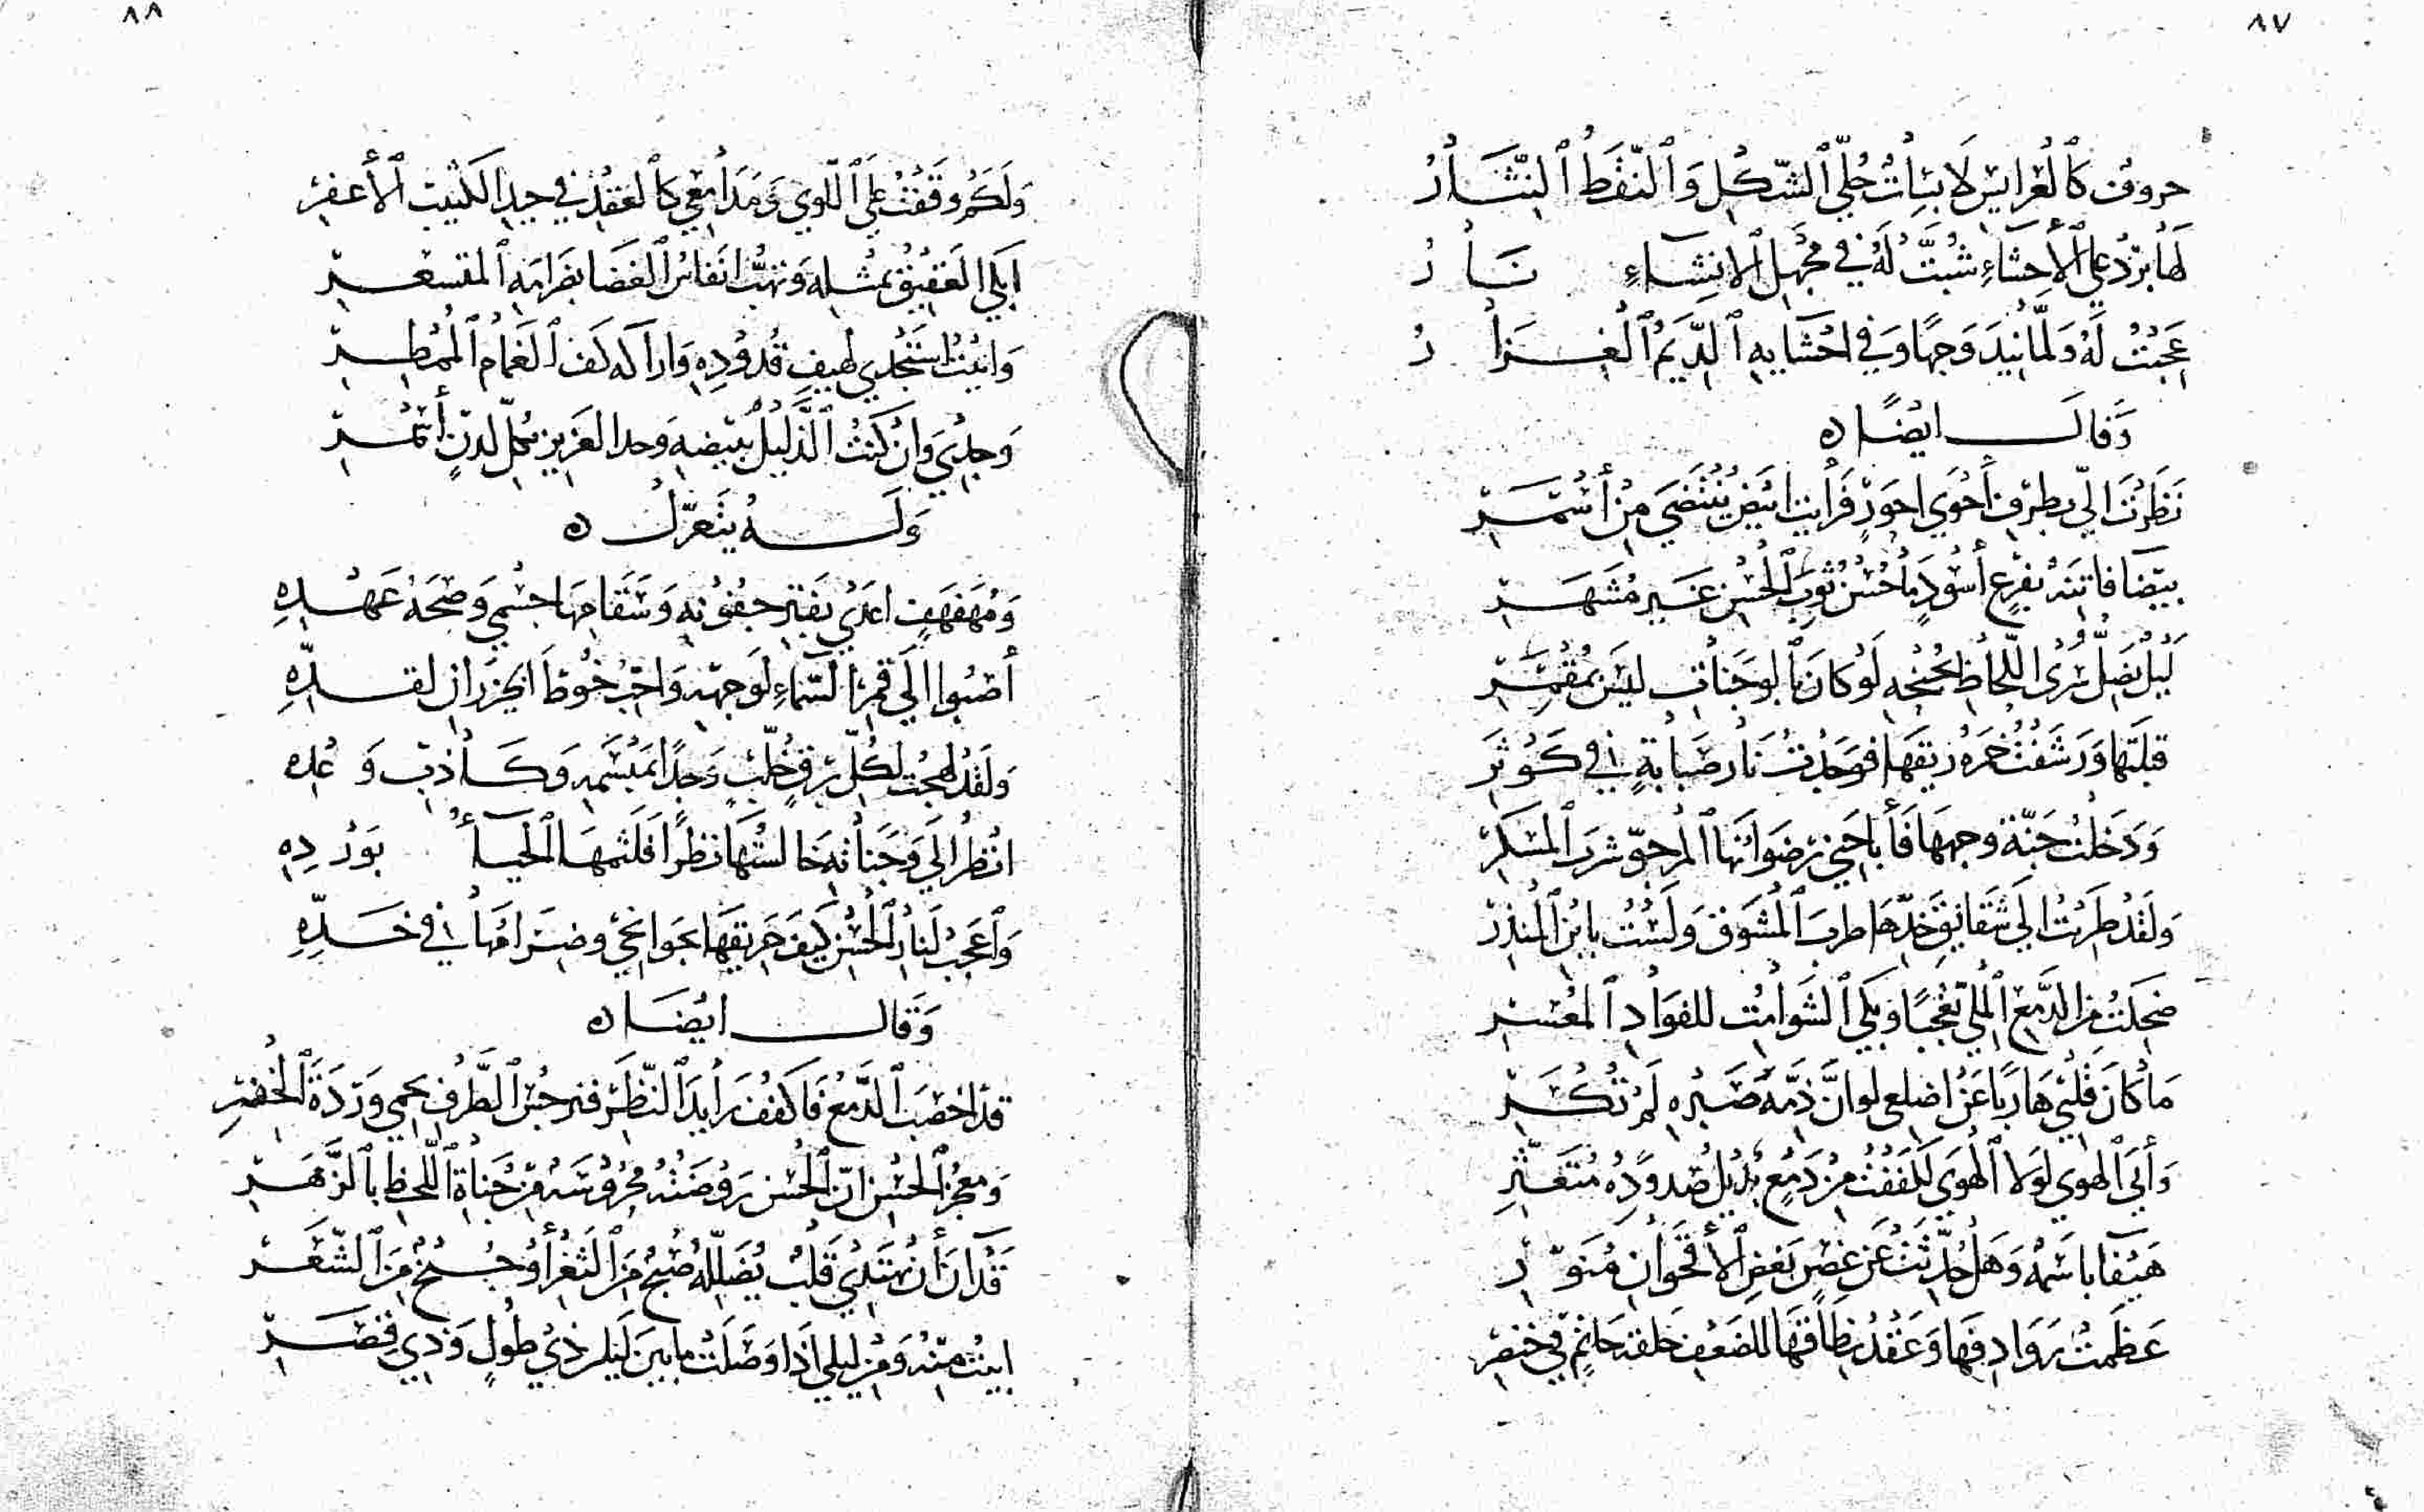 ٨٧
حروف كالعرايس لابسات حلي الشكل والنقط النثار
لها برد علي الأحشاء شبت له في مجهل الانشاء نار
عجبت له ولما نيد وجها وفي احشايه الديم الغزار
وقال ايضا ه
نظرت الي بطرف أحوي احور فرأيت ابيض ينتضي من أسمر
بيضا فاتنه بفرع أسود ما حسن ثوب الحسن غير مشهر
ليل يضل سري اللحاظ بجنحه لو كان بالوجنات ليس بمقمر
قبلتها ورشفت خمره ريقها فوجدت نار صبابة في كوثر
ودخلت جنة وجهها فأباحني رضوانها المرجو شرب المسكر
ولقد طربت الي شقايق خدها طرب المشوق ولست بابن المنذر
ضحكت من الدمع الملي تعجبا وبكي الشوامت للفواد المعسر
ما كان قلبي هاربا عن اضلعي لو ان ذمه صبره لم تكسر
وأبي الهوي لولا الهوي لكففت من دمع بذيل صدوده متعثر
هيفا باسمه وهل حدثت عن غصن بغض الأقحوان منور
عظمت روادفها وعقد نطاقها للضعف حلقة خاتم في خنصر
٨٨
ولكم وقفت علي اللوي ومدامعي كالعقد في جيد الكثيب الأعفر
ابكي العقيق بمثله وتهب انفاس الغضا بضرامه المتسعر
وابيت استجدي لهيف قدوده واراكه كف الغمام الممطر
وجدي وان كنت الذليل ببيضه وجد العزيز بكل لدن أسمر
وله يتغزل ه
ومهفهف اعدي بفتر جفونه وسقامها جسمي وصحة عهده
أصبوا الي قمر السماء لوجهه واحب خوط الخيزران لقده
ولقد لهجت لكل برق خلب وجدا بمبسمه وكاذب وعده
انظر الي وجناته خالستها نظرا فلثمها الحياء بورده
واعجب لنار الحسن كيف حريقها بجوانحي وضرامها في خده
وقال ايضا ه
قد اخصب الدمع فاكفف رايد النظر فنرجس الطرف يحمي وردة الخفر
ومعجز الحسن ان الحسن روضته محروسه من جناة اللحظ بالزهر
قد ان أن يهتدي قلب يضلله صبح من الثغر أو جنح من الشعر
ابيت منه ومن ليلي اذا وصلت ما بين ليلين ذي طول وذي قصر